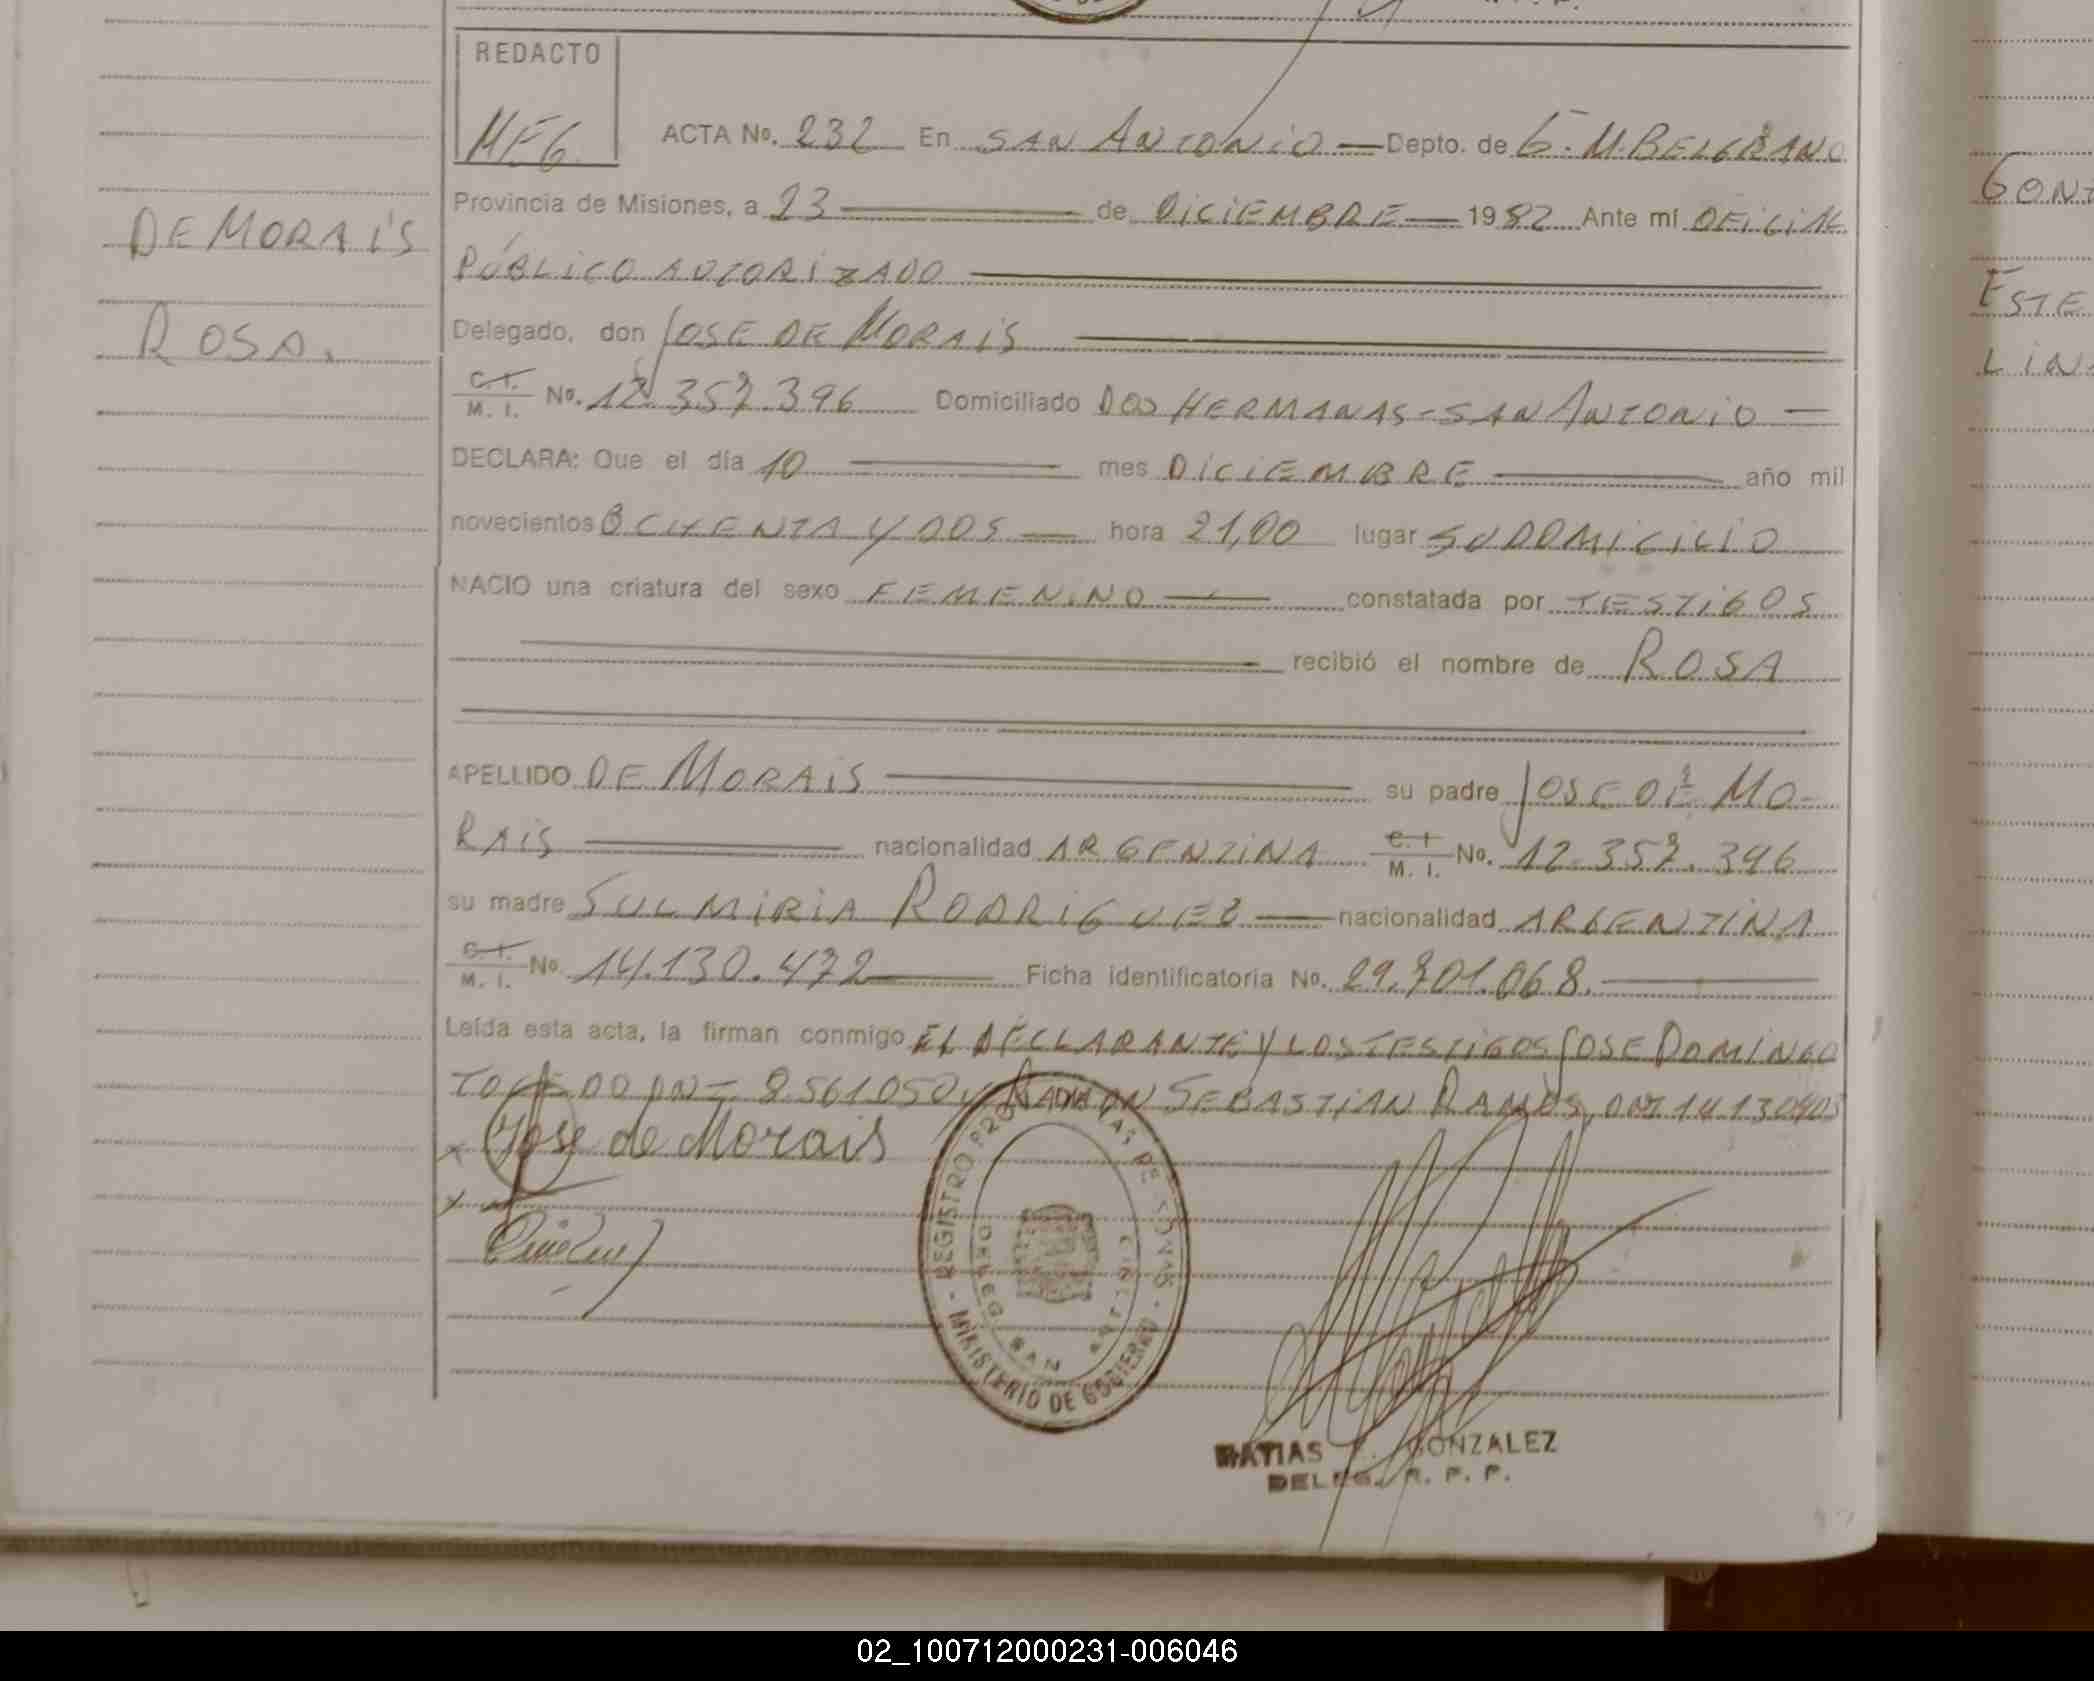 REDACTO
MFG
ACTA No. 232 En SAN ANTONIO Depto. de G. M. BELGRANO
Provincia de Misiones, a 23 de DICIEMBRE 1982 Ante mí OFICIAL
PÚBLICO AUTORIZADO
DE MORAIS
ROSA.
Delegado, don JOSE DE MORAIS
C.I. M. I. No. 12.357.396 Domiciliado DOS HERMANAS-SAN ANTONIO
DECLARA: Que el día 10 mes DICIEMBRE año mil
novecientos OCHENTA Y DOS hora 21,00 lugar SU DOMICILIO
NACIO una criatura del sexo FEMENINO constatada por TESTIGOS
recibió el nombre de ROSA
APELLIDO DE MORAIS su padre JOSE DE MO-
RAIS nacionalidad ARGENTINA C.I M. I. No. 12.357.396
su madre SULMIRIA RODRIGUEZ nacionalidad ARGENTINA
C.I. M. I. No. 14.130.472 Ficha identificatoria No. 29.701.068.
Leída esta acta, la firman conmigo EL DECLARANTE Y LOS TESTIGOS JOSE DOMINGO
8.561.050 Y RAMON SEBASTIAN RAMOS, DNI 14130403
Jose de Morais
REGISTRO PROV. DE LAS PERSONAS
DELEG. SAN ANTONIO
MINISTERIO DE GOBIERNO
MATIAS F. GONZALEZ
DELEG. R. P. P.
GONZ
ESTE
LIN
02_100712000231-006046